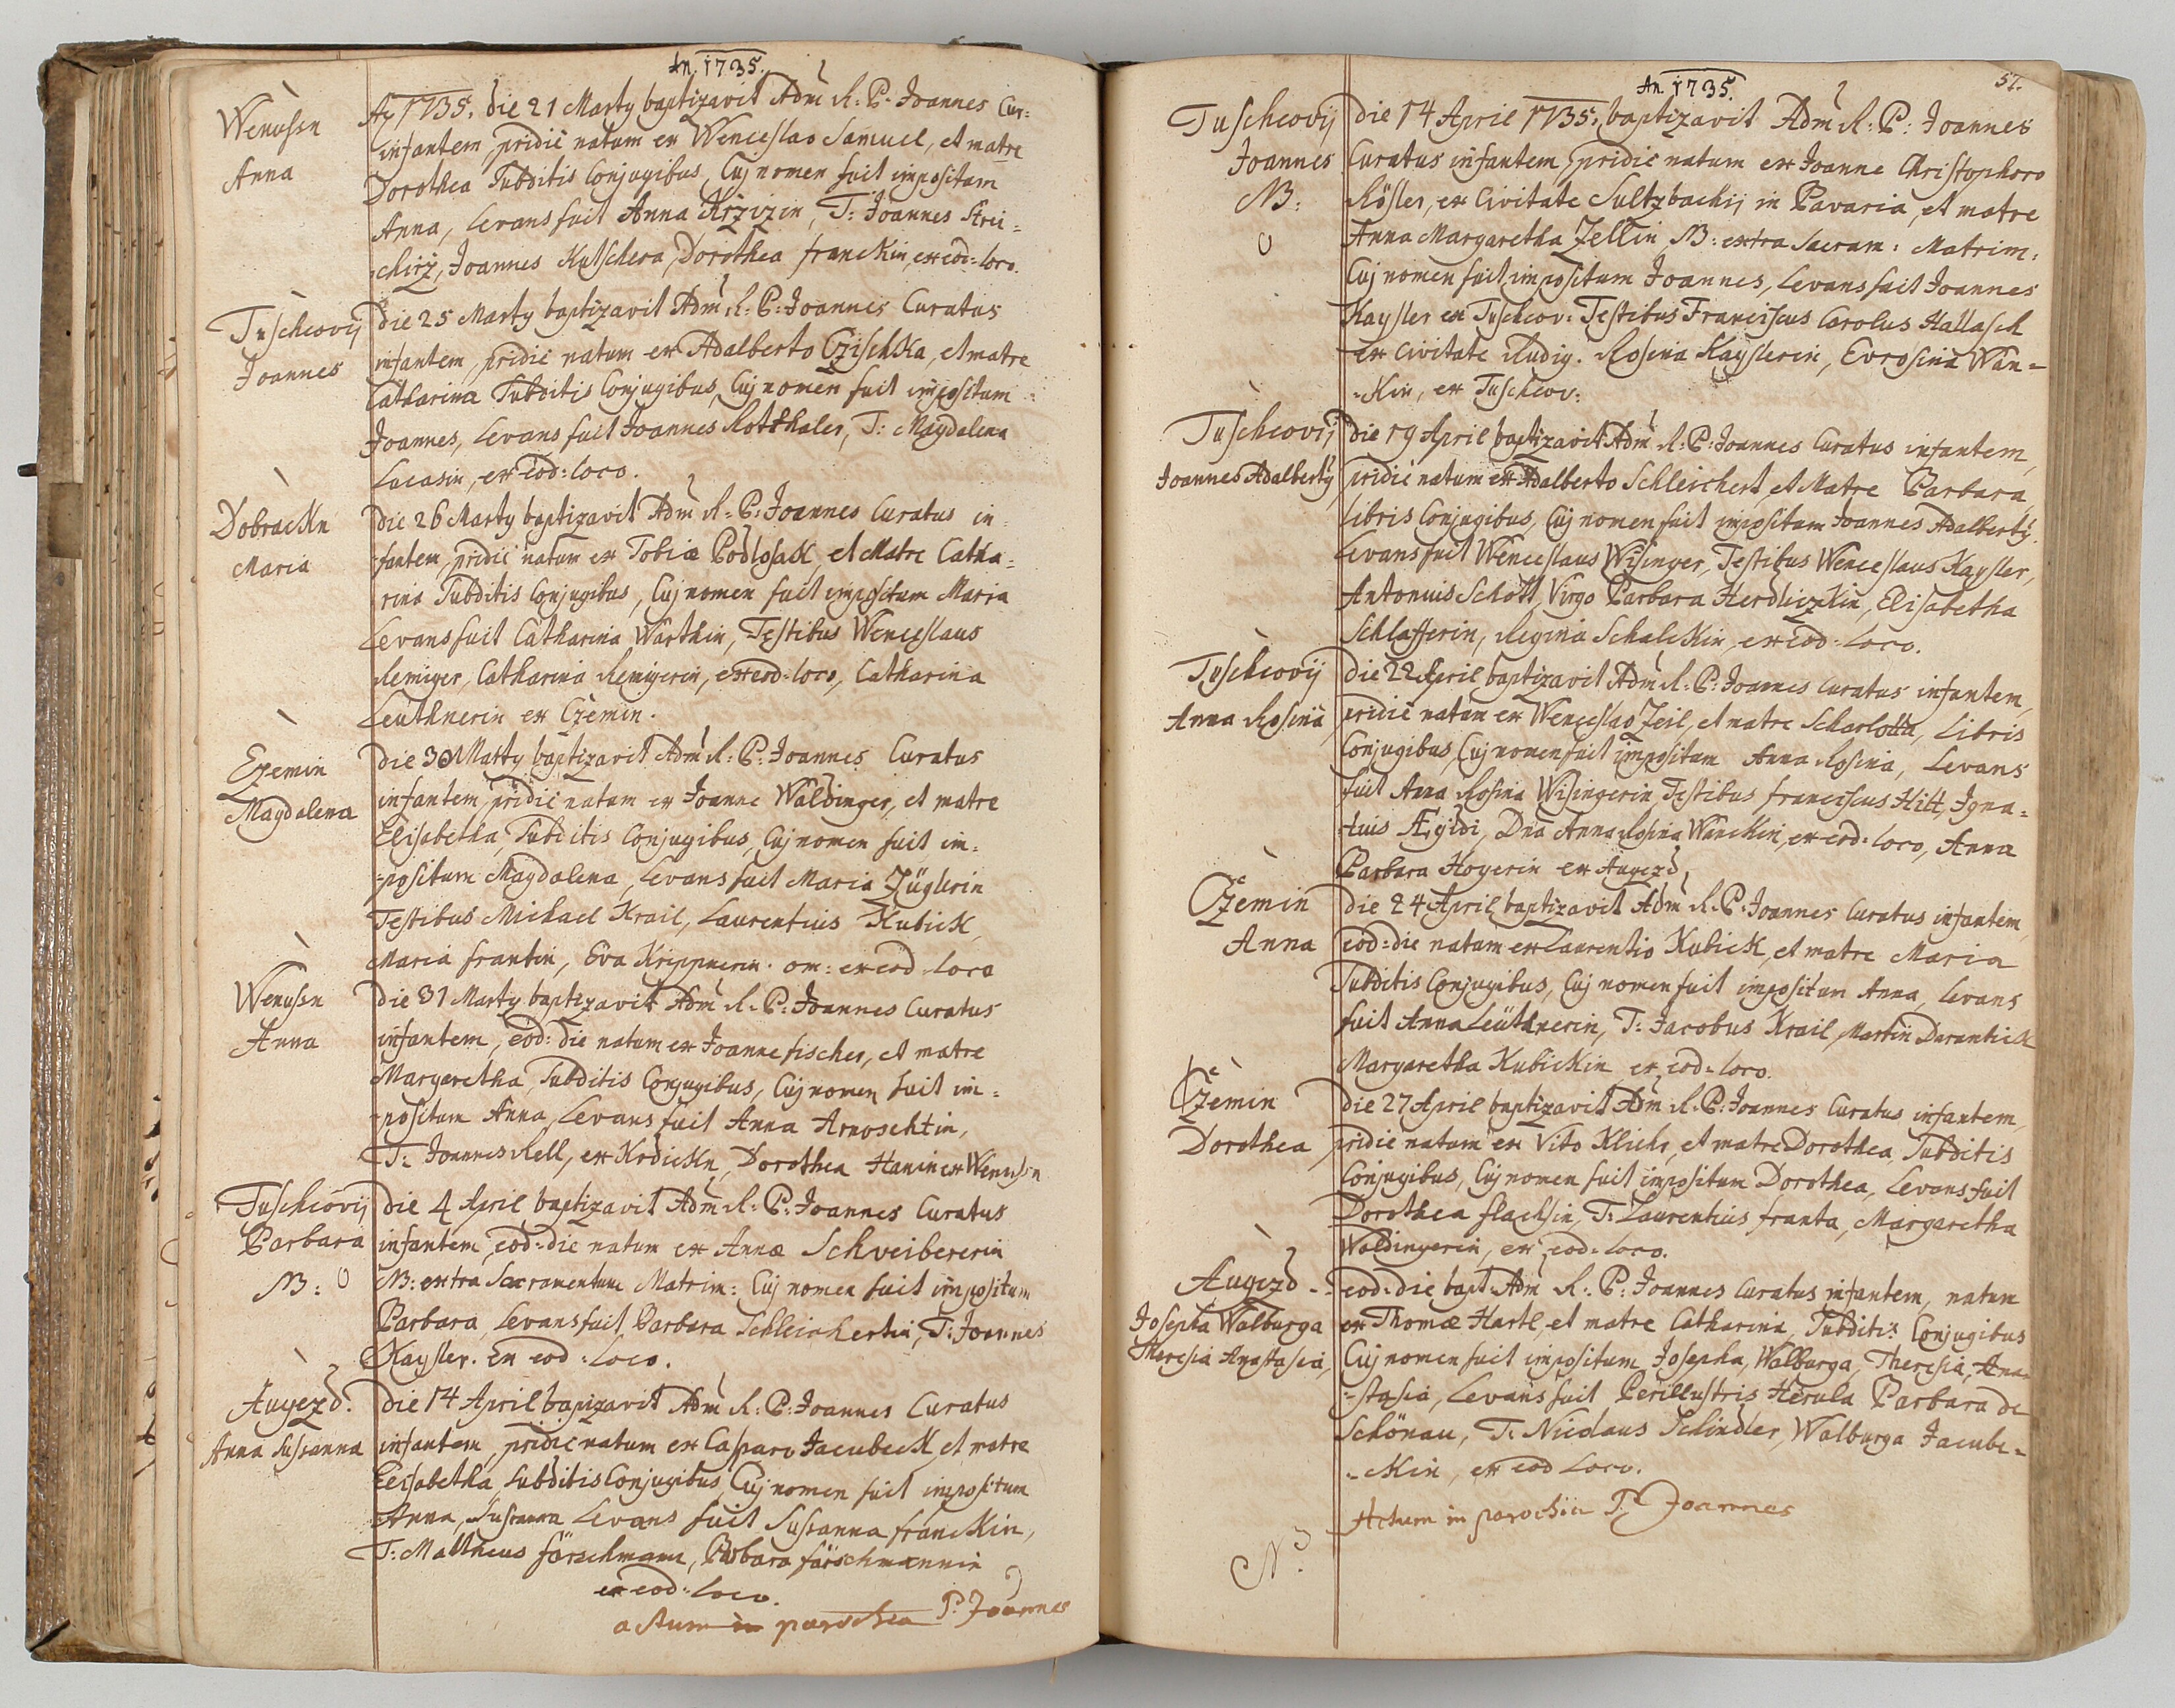 An. 1735.
Wenussn
Anna
Aō 1735. die 21 Marty baptizavit Adm R: P. Joannes Cur:
infantem, pridie natum ex Wenceslao Samuel, et matre
Dorothea Subditis Conjugibus, Cuj nomen fuit impositum
Anna, Levans fuit Anna Krzizin, T: Joannes Strei=
chirz, Joannes Kutschera, Dorothea franckin, ex eod: loco.
Tuschcovij
Joannes
die 25 Marty baptizavit Adm R: P: Joannes Curatus
infantem, pridie natum ex Adalberto Czischka, et matre
Catharina Subditis Conjugibus, Cuj nomen fuit impositum
Joannes, Levans fuit Joannes Rotthaler, T: Magdalena
Lucasin, ex eod: loco.
Dobrackn
Maria
Die 26 Marty baptizavit Adm R: P: Joannes Curatus in=
fantem, pridie natum ex Tobiæ Podlosak, et Matre Catha=
rina Subditis Conjugibus, Cuj nomen fuit impositum Maria
Levans fuit Catharina Warthin, Testibus Wenceslaus
Remiger, Catharina Remigerin, ex eod: loco, Catharina
Leuthnerin ex Czemin.
Czemin
Magdalena
die 30 Marty baptizavit Adm R: P: Joannes Curatus
infantem, pridie natum ex Joanne Waldinger, et matre
Elisabetha, Subditis Conjugibus, Cuj nomen fuit im=
=positum Magdalena, Levans fuit Maria Züglerin
Testibus Michael Krail, Laurentius Kubick,
Maria frantin, Eva Krippnerin. om: ex eod loco
Wenussn
Anna
Die 31 Marty baptizavit Adm R: P: Joannes Curatus
infantem, eod: die natum ex Joanne fischer, et matre
Margaretha, Subditis Conjugibus, Cuj nomen fuit im=
=positum Anna, Levans fuit Anna Arnoschtin,
T: Joannes Rell, ex Krdickn, Dorothea Hanin ex Wenussn
Tuschcovij
Barbara
NB:
die 4 April baptizavit Adm R: P: Joannes Curatus
infantem, eod: die natum ex Annæ Schreibererin
NB: extra Sacramentum Matrim: Cuj nomen fuit impositum
Barbara, Levans fuit Barbara Schleichertin, T: Joannes
Kaysler. Ex eod: loco.
Augezd.
Anna Susanna
die 14 April bapizavit Adm R: P: Joannes Curatus
infantem, pridie natum ex Casparo Jacubeck, et matre
Eelsabetha, subditis Conjugibus, Cuj nomen fuit impositum
Anna, Susanna Levans fuit Susanna franckin,
T: Mattheus förschmann, Barbara förschmannin
ex eod: loco.
actum in parochia P: Joannes
An. 1735.
57.
Tuschcovij
Joannes
NB:
die 14 April 1735. baptizavit Adm R: P: Joannes
Curatus infantem, pridie natum ex Joanne Christophoro
Rösler, ex Civitate Sultzbachij in Bavaria, et matre
Anna Margaretha Zellin, NB: extra Sacram: Matrim:
Cuj nomen fuit impositum Joannes, Levans fuit Joannes
Kaysler ex Tuschcov: Testibus Franciscus Carolus Hallasch
ex Civitate Rudig. Rosina Kayslerin, Evrosina Wan=
=kin, ex Tuschcov:
Tuschcovij
Joannes Adalberty
die 19 April baptizavit Adm R: P: Joannes Curatus infantem,
pridie natum ex Adalberto Schleichert, et Matre Barbara
Libris Conjugibus, Cuj nomen fuit impositum Joannes Adalberty.
Levans fuit Wenceslaus Wisinger, Testibus Wenceslaus Kaysler,
Antonius Schött, Virgo Barbara Herdliczkin, Elisabetha
Schlafferin, Regina Schalckin, ex eod: loco.
Tuschcovij
Anna Rosina
die 22 April baptizavit Adm R: P: Joannes Curatus infantem,
pridie natum ex Wenceslao Zeil, et matre Scharlotta, Libris
Conjugibus, Cuj nomen fuit impositum Anna Rosina, Levans
fuit Anna Rosina Wisingerin, Testibus franciscus Hitt, Igna=
=tius Ægidi, Dna Anna Rosina Wanckin, ex eod: loco, Anna
Barbara Hoyerin ex Augezd,
Czemin
Anna
die 24 April baptizavit Adm R: P: Joannes Curatus infantem,
eod: die natum ex Laurentio Kubick, et matre Maria
Subditis Conjugibus, Cuj nomen fuit impositum Anna, Levans
fuit Anna Leüthnerin, T: Jacobus Krail, Martin Darantick
Margaretha Kubickin ex eod: loco.
Czemin
Dorothea
Die 27 April baptizavit Adm R: P: Joannes Curatus infantem,
pridie natum ex Vito Klichr, et matre Dorothea, Subditis
Conjugibus, Cuj nomen fuit impositum Dorothea, Levans fuit
Dorothea flachsin, T: Laurentius franta, Margaretha
Waldingerin, ex eod: loco.
Augezd
Josepha Walburga
Theresia Anastasia,
eod: die bapt: Adm R: P: Joannes Curatus infantem, natum
ex Thomæ Hartl, et matre Catharina, Subditis Conjugibus
Cuj nomen fuit impositum Josepha, Walburga, Theresia, Ana=
=stasia, Levans fuit Perillustris Herula Barbara de
Schönau, T: Nicolaus Schindler, Walburga Jacube=
=ckin, ex eod Loco.
Actum in parochia P: Joannes